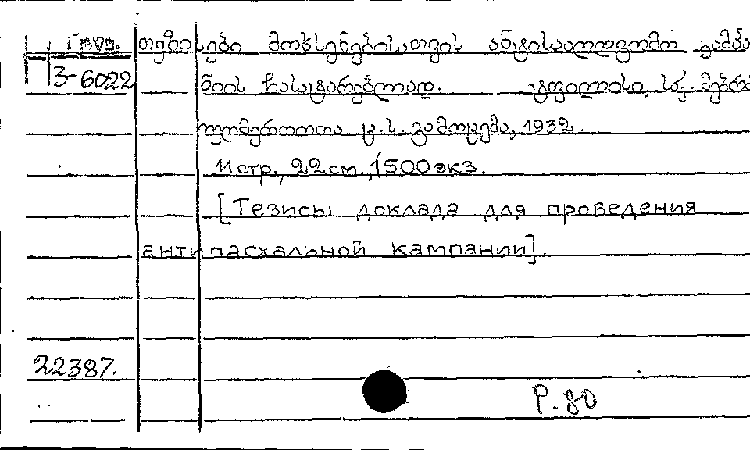 Груз. თეზისები მოხსენებისათვის ანტისააღდგომო კამპა
3-6022 ნიის ჩასატარებლად. ტფილისი, სქ. მებრძ.
უღმერთოთა ც.ს. გამოცემა, 1932.
11 стр., 22 см, 1500 экз.
[Тезисы доклада для проведения
антипасхальной кампании].
22387.
Р. 80